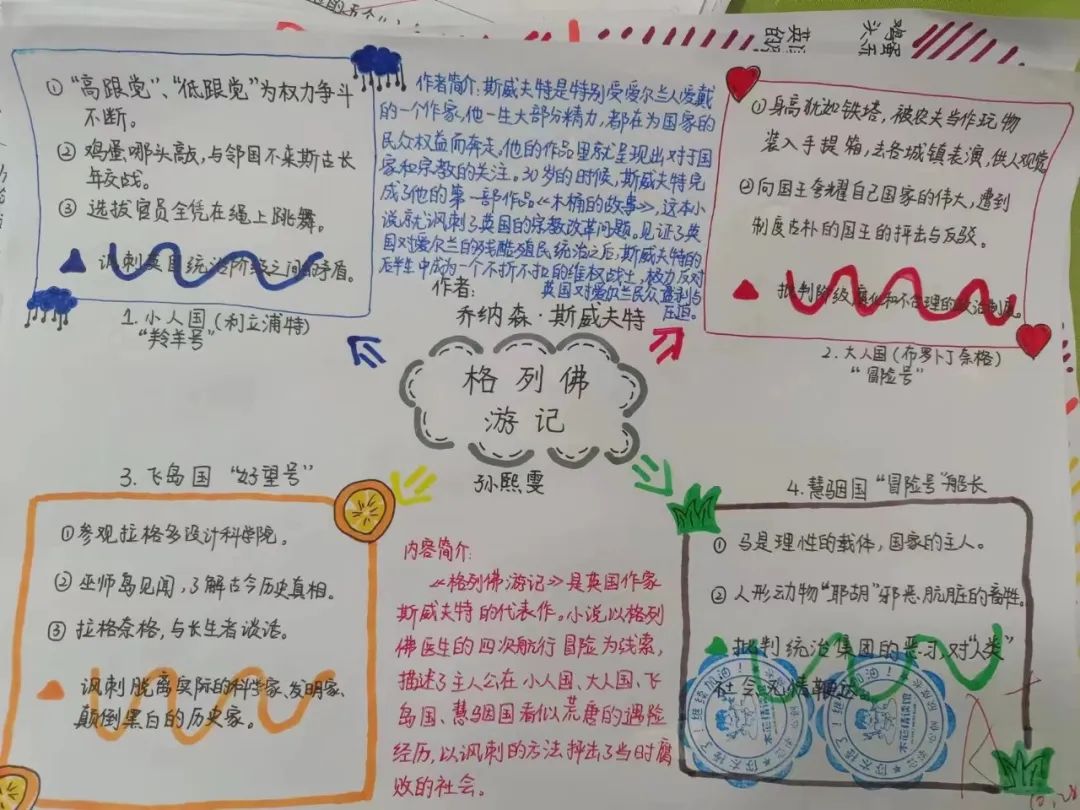 ①“高跟党”、“低跟党”为权力争斗
不断。
② 鸡蛋哪头敲,与邻国不来斯古长
年交战。
③ 选拔官员全凭在绳上跳舞。
讽刺英国统治阶级之间的矛盾。
1. 小人国(利立浦特)
“羚羊号”
作者简介:斯威夫特是特别受爱尔兰人爱戴
的一个作家,他一生大部分精力,都在为国家的
民众权益而奔走。他的作品里就呈现出对于国
家和宗教的关注。30岁的时候,斯威夫特完
成了他的第一部作品《木桶的故事》,这本小
说就讽刺了英国的宗教改革问题。见证了英
国对爱尔兰的残酷殖民统治之后,斯威夫特的
后半生中成为一个不折不扣的维权战士,极力反对
英国对爱尔兰民众盘剥与
压迫。
作者:
乔纳森·斯威夫特
①身高犹如铁塔,被农夫当作玩物
装入手提箱,去各城镇表演,供人观赏
②向国王夸耀自己国家的伟大,遭到
制度古朴的国王的抨击与反驳。
批判阶级腐化和不合理的政治制度。
2. 大人国(布罗卜丁奈格)
“冒险号”
格列佛
游记
孙熙雯
3. 飞岛国 “好望号”
①参观拉格多设计科学院。
② 巫师岛见闻,了解古今历史真相。
③ 拉格奈格,与长生者谈话。
讽刺脱离实际的科学家、发明家、
颠倒黑白的历史家。
内容简介:
《格列佛游记》是英国作家
斯威夫特的代表作。小说以格列
佛医生的四次航行冒险为线索,
描述了主人公在小人国、大人国、飞
岛国、慧骃国看似荒唐的遇险
经历,以讽刺的方法抨击了当时腐
败的社会。
4. 慧骃国“冒险号”船长
① 马是理性的载体,国家的主人。
② 人形动物“耶胡”邪恶肮脏的畜牲。
批判统治集团的恶习,对“人类”
社会无情鞭挞。
你太棒了!继续加油!
你太棒了!继续加油!